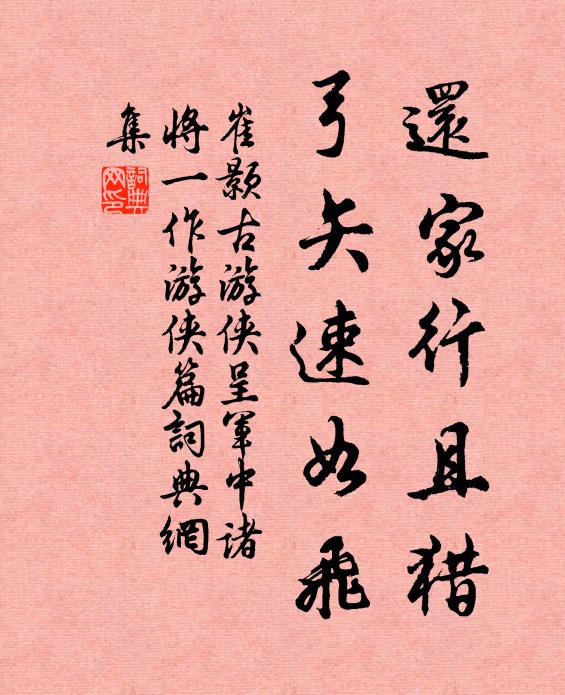 還家行且猎
弓矢速如飛
崔颢古游侠呈軍中諸
將一作游侠篇詞典網
集
詞典网印